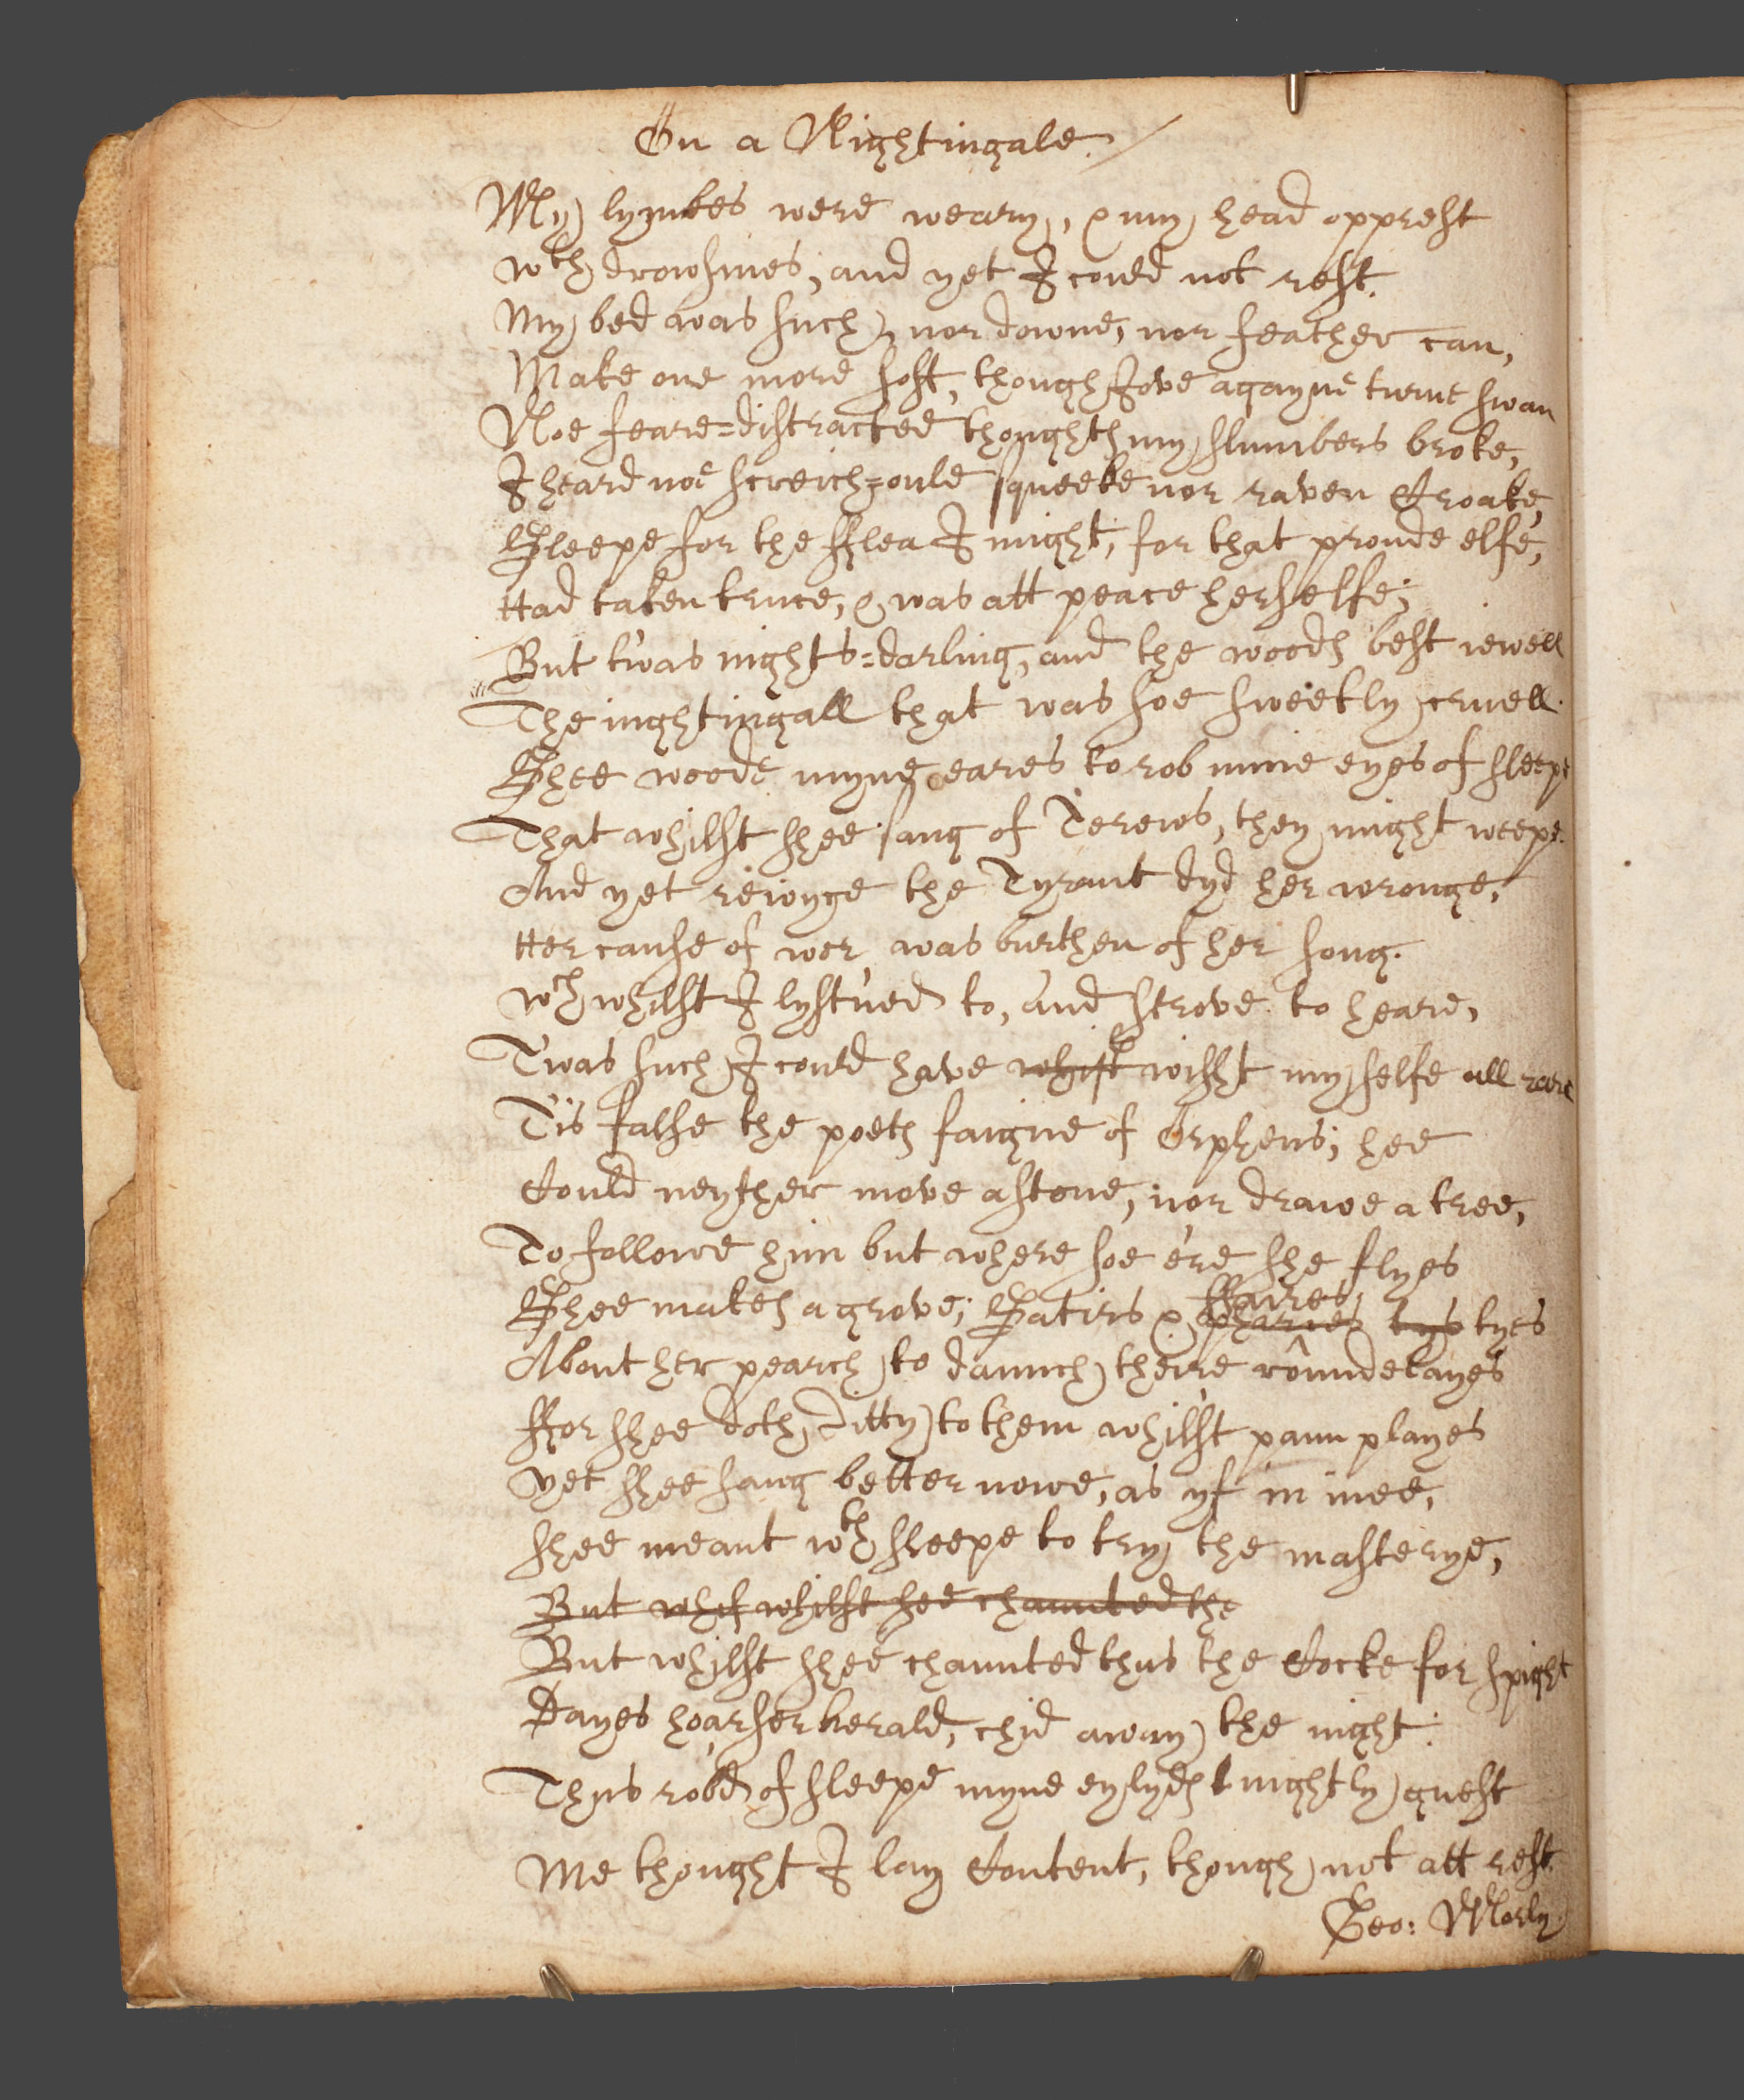 On a Nightingale.
My lymbes were weary, & my head opprest
wth drowsines, and yet I could not rest.
My bed was such, nor downe, nor feather can,
Make one more soft, though Jove agayne turne swan
Noe feare=distracted thoughts my slumbers broke,
I heard noe screich=oule squeeke nor raven Croake,
Sleepe for the fflea I might, for that proude elfe,
Had taken truce, & was att peace herselfe;
But t'was nights=darling, and the woods best iewell
The nightingall that was soe sweetly cruell.
Shee woode myne eares to rob mine eyes of sleepe
That whilst shee sang of Terews, they might weepe.
And yet reioyce the Tyrant dyd her wronge,
Her cause of woe was burthen of her song.
wch whilst I lyst'ned to, and strove to heare,
Twas such I could have whist wisht my selfe all eare
Tis false the poets faigne of Orpheus; hee
Could neyther move a stone, nor drawe a tree,
To followe him but where soe e're she flyes
Shee makes a grove; Satirs & pharies ffairies, tys tyes
About her pearch to daunch theire roundelayes
ffor shee doth Ditty to them whilst pann playes
yet shee sang better nowe, as yf in mee,
shee meant wth sleepe to try the masterye,
But whif whilst hee chaunted the
But whilst shee chaunted thus the Cocke for spight
Dayes hoarser herald, chid away the night:
Thus rob'd of sleepe myne eylyds nightly guest
Me thought I lay Content, though not att rest.
Geo: Morly.